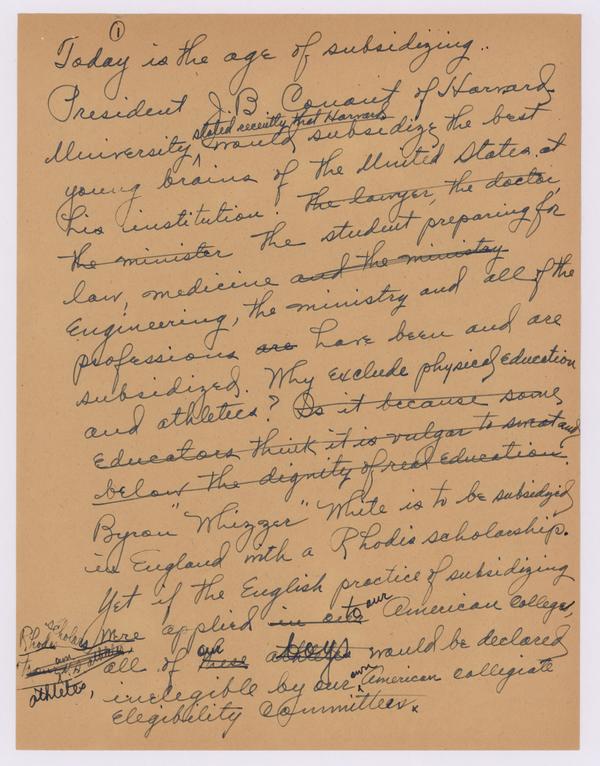 ①
Today is the age of subsidizing..
President J.B. Conant of Harvard
stated recently that Harvard
University ^ would subsidize the best
young brains of the United States at
his institution. The lawyer, the doctor,
the minister The student preparing for
law, medicine and the ministry
Engineering, the ministry and all of the
professions are have been and are
subsidized. Why exclude physical education
and athletics? Is it because some
Educators think it is vulgar to sweat and
below the dignity of real education.
Byron "Whizzer" White is to be subsidized
in England with a Rhodis scholarship.
Yet if the English practice of subsidizing
Rhodes scholars were applied in our to our American colleges,
all of such these athletes boys would be declared
athletes,
inelegible by our own American collegiate
Elegibility Committees.